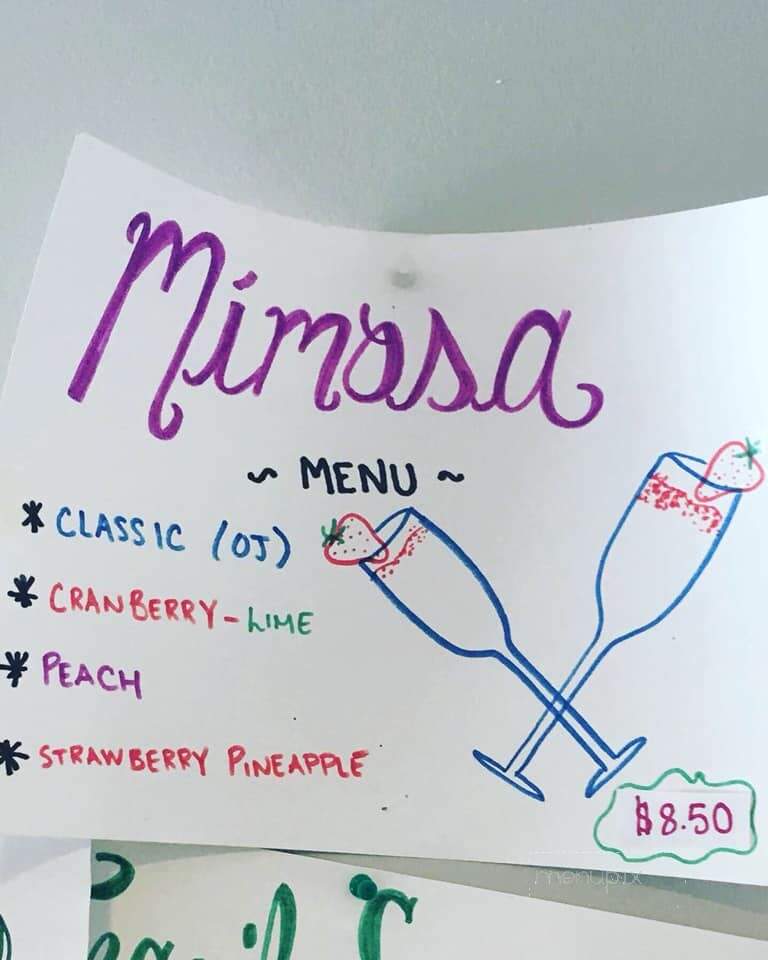 Mimosa
~ MENU ~
* CLASSIC (OJ)
* CRANBERRY-LIME
* PEACH
* STRAWBERRY PINEAPPLE
$8.50
menupix